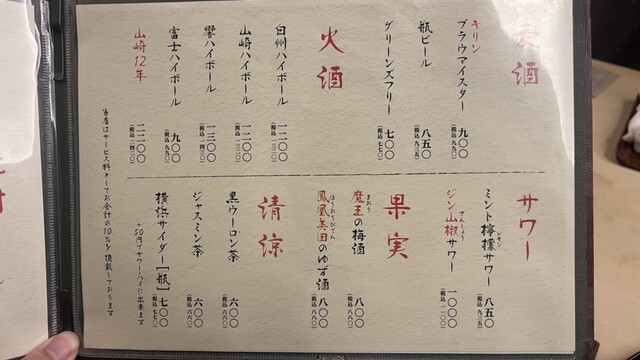 麦酒
キリン
ブラウマイスター 九〇〇
（税込 九九〇）
瓶ビール 八五〇
（税込 九三五）
グリーンズフリー 七〇〇
（税込 七七〇）
火酒
白州ハイボール 一二〇〇
（税込 一三二〇）
山崎ハイボール 一二〇〇
（税込 一三二〇）
響ハイボール 一三〇〇
（税込 一四三〇）
富士ハイボール 九〇〇
（税込 九九〇）
山崎12年 二二〇〇
（税込 二四二〇）
サワー
ミント檸檬サワー 八五〇
（税込 九三五）
ジン山椒サワー 一〇〇〇
（税込 一一〇〇）
果実
まおう
魔王の梅酒 八〇〇
（税込 八八〇）
ほうおうびでん
鳳凰美田のゆず酒 八〇〇
（税込 八八〇）
清涼
黒ウーロン茶 六〇〇
（税込 六六〇）
ジャスミン茶 六〇〇
（税込 六六〇）
横浜サイダー［瓶］ 七〇〇
（税込 七七〇）
+50円でサワー・ハイに出来ます
当店はサービス料としてお会計の10%を頂戴しております